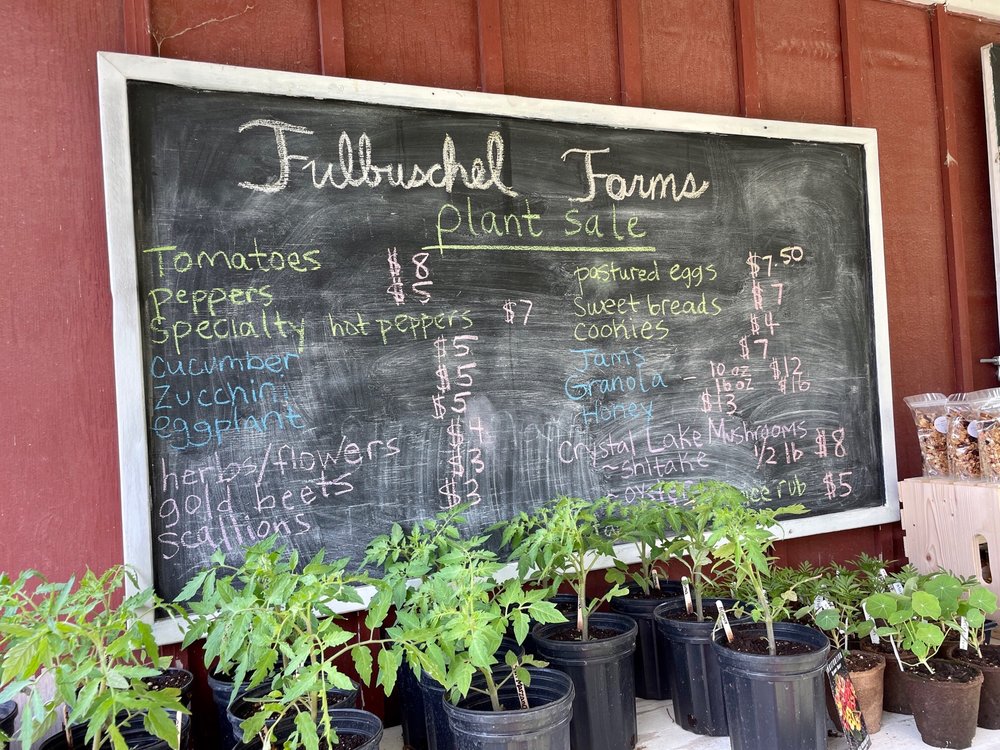 Fulbuschel Farms
plant sale
Tomatoes $8
peppers $5
specialty hot peppers $7
cucumber $5
Zucchini $5
eggplant $5
herbs/flowers $4
gold beets $3
scallions $3
pastured eggs $7.50
Sweet breads $7
cookies $4
Jams $7
Granola - 10 oz $12
16 oz $16
Honey $13
Crystal Lake Mushrooms
~shitake 1/2 lb $8
~oyster
rub $5